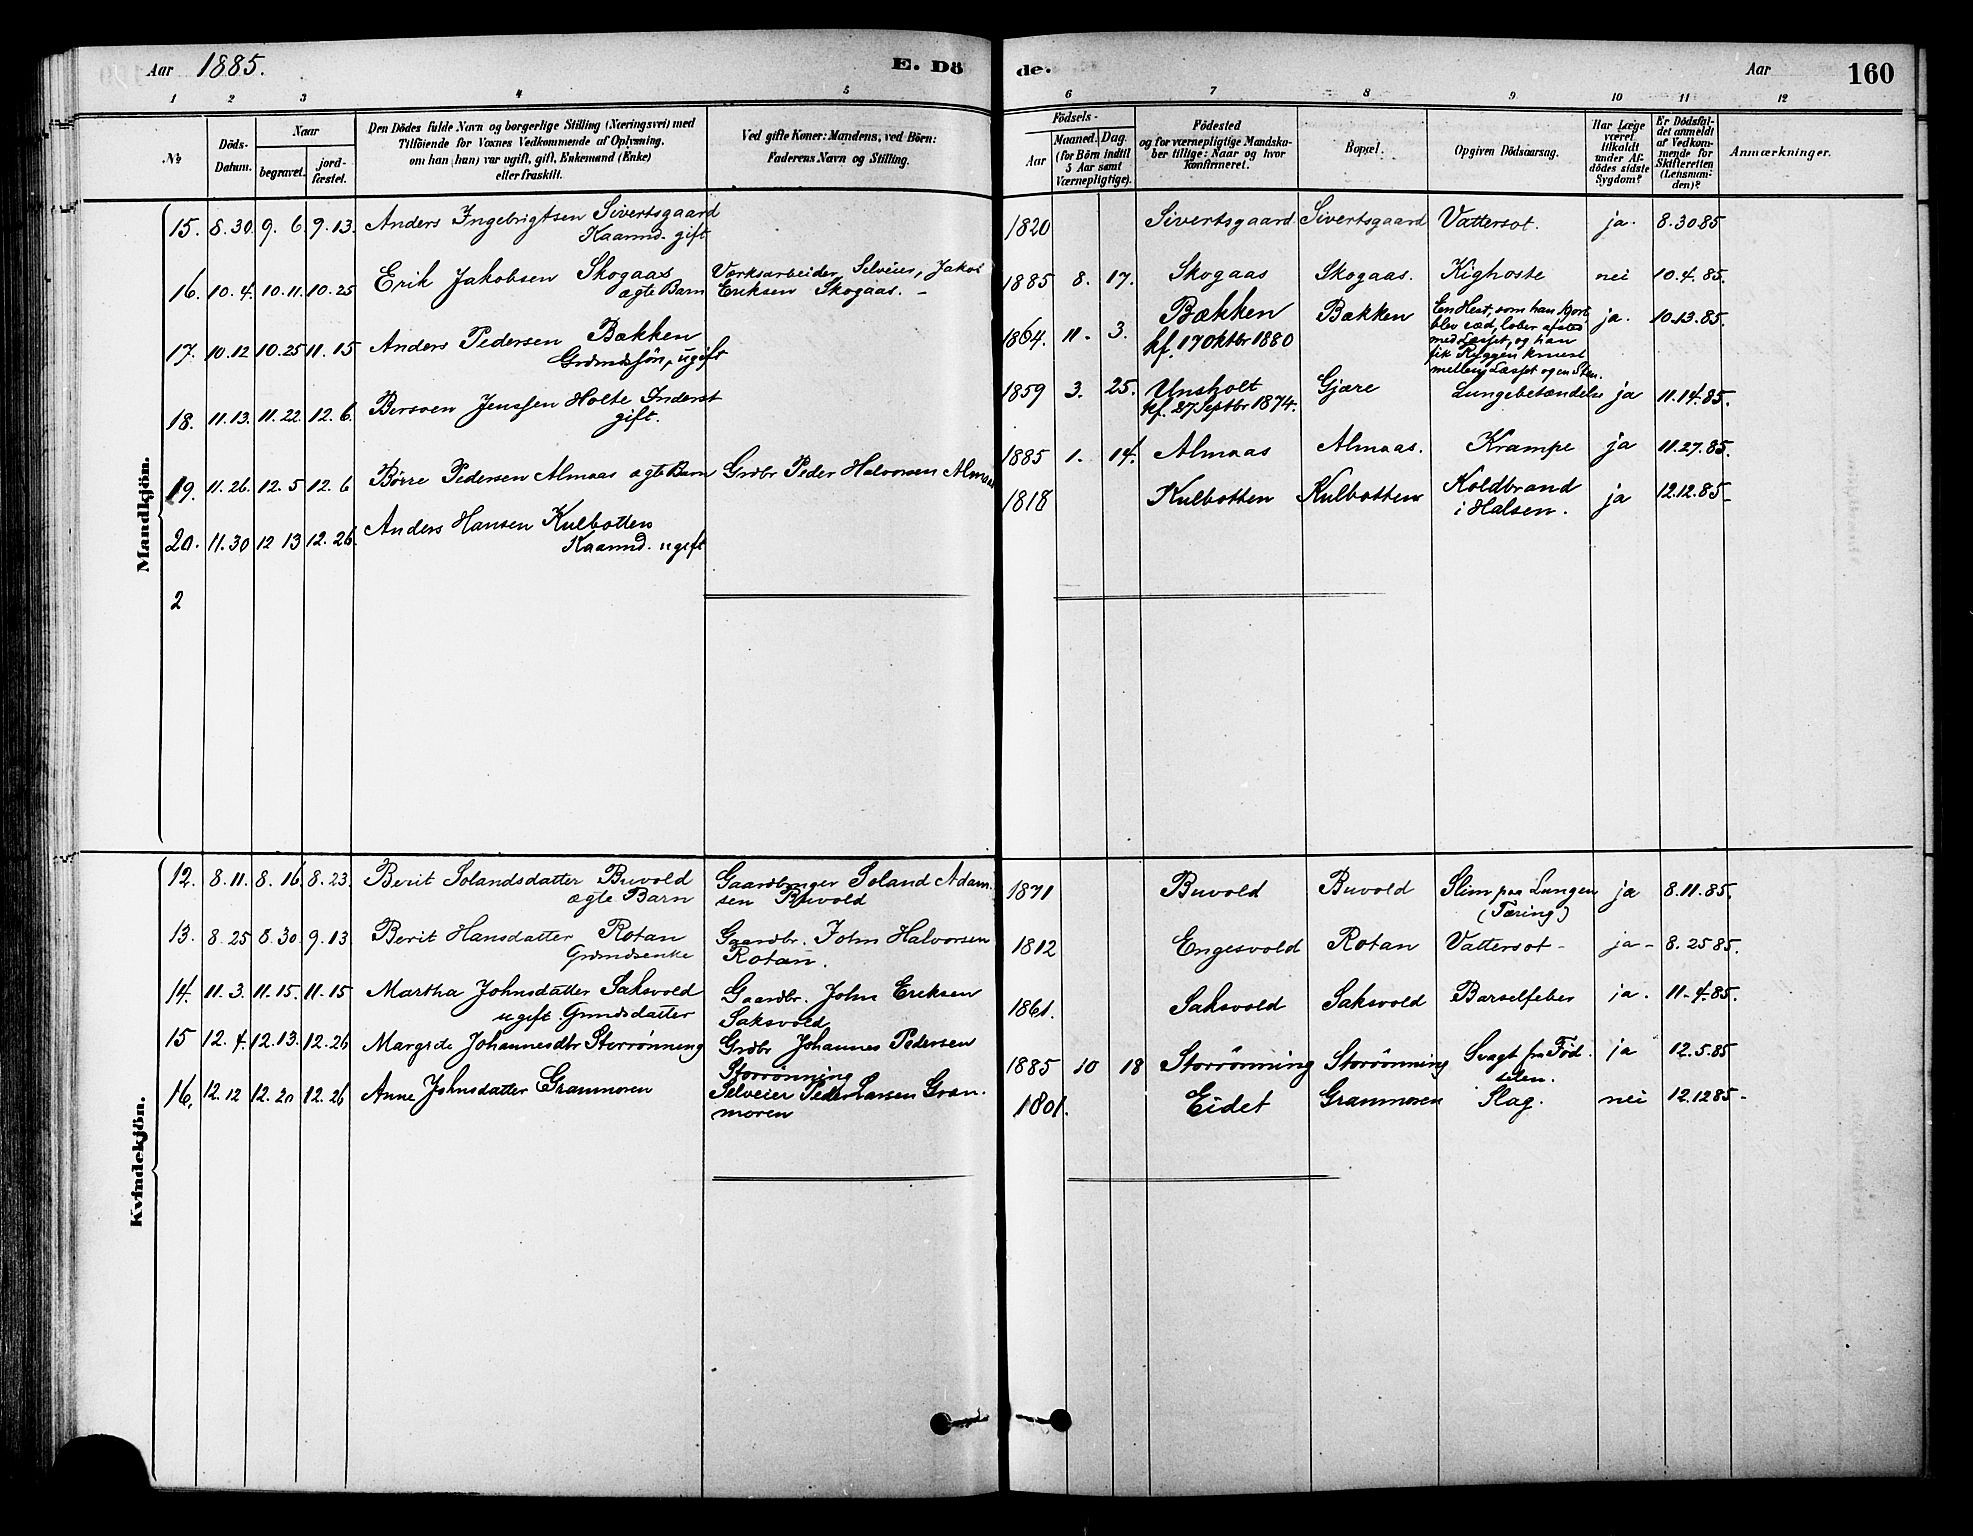 Aar 1885.
E. Dö
de.
Aar
160
1 2 3 4 5
6 7 8 9 10 11 12
№
Döds-
Datum.
Naar
begravet.
jord-
fæstet.
Den Dödes fulde Navn og borgerlige Stilling (Næringsvei) med
Tilföiende for Voxnes Vedkommende af Oplysning,
om han (hun) var ugift, gift, Enkemand (Enke)
eller fraskilt.
Ved gifte Koner: Mandens, ved Börn:
Faderens Navn og Stilling.
Födsels-
Aar
Maaned. Dag.
(for Börn indtil
5 Aar samt
Værnepligtige).
Födested
og for værnepligtige Mandska-
ber tillige: Naar og hvor
konfirmeret.
Bopæl.
Opgiven Dödsaarsag.
Har Læge
været
tilkaldt
under Af-
dödes sidste
Sygdom?
Er Dödsfal-
det anmeldt
af Vedkom-
mende for
Skifteretten
(Lensman-
den)?
Anmærkninger.
Mandkjön.
15. 8.30. 9. 6. 9.13. Anders Ingebrigtsen Sivertsgaard
Kaarmd. gift
1820 Sivertsgaard Sivertsgaard Vattersot. ja. 8.30 85
16. 10.4. 10.11. 10.25 Erik Jakobsen Skogaas
ægte Barn
Værksarbeider, Selveier, Jakob
Eriksen Skogaas. –
1885 8. 17. Skogaas Skogaas. Kighoste nei 10.4. 85.
17. 10.12 10.25 11.15 Anders Pedersen Bækken
Grdmdssön, ugift
1864. 11. 3. Bækken
kf. 17 Oktbr 1880
Bækken
En Hest, som han kjørte,
blev ræd, løber afsted
med Læsset, og han
fik Ryggen knust
mellem Læsset og en Sten.
ja. 10.13. 85.
18. 11.13. 11.22. 12.6. Bersven Jenssen Holte Inderst
gift.
1859 3. 25. Unsholt
kf. 27 Septbr 1874.
Gjære Lungebetændelse ja 11.14. 85.
19. 11.26. 12.5 12.6 Børre Pedersen Almaas ægte Barn Grdbr Peder Halvorsen Almaas
1885 1. 14. Almaas Almaas. Krampe ja 11.27. 85.
20. 11.30 12 13 12.26. Anders Hansen Kulbotten
Kaarmd. ugift
1818 Kulbotten Kulbotten Koldbrand
i Halsen. ja 12.12. 85–
2
Kvindekjön.
12. 8.11. 8.16. 8.23. Berit Solandsdatter Buvold
ægte Barn
Gaardbruger Soland Adam-
sen Buvold
1871 Buvold Buvold Slim paa Lungen
(Tæring) ja 8.11. 85.
13. 8.25 8.30. 9.13. Berit Hansdatter Rotan
Grdmdsenke
Gaardbr. John Halvorsen
Rotan.
1812 Engesvold Rotan Vattersot– ja– 8.25 85.
14. 11.3. 11.15. 11.15 Martha Johnsdatter Saksvold
ugift Grmdsdatter
Gaardbr. John Eriksen
Saksvold
1861. Saksvold Saksvold Barselfeber ja. 11.4. 85.
15 12.4. 12.13. 12.26 Margide Johannesdtr Storrönning
Grdbr Johannes Pedersen
Storrönning
1885 10 18 Storrönning Storrönning Svagt fra Föd-
selen. ja 12.5.85
16. 12.12 12.20 12.26 Anne Johnsdatter Granmoren
Selveier Peder Larsen Gran-
moren
1801. Eidet Granmoren Slag. nei 12.12 85–